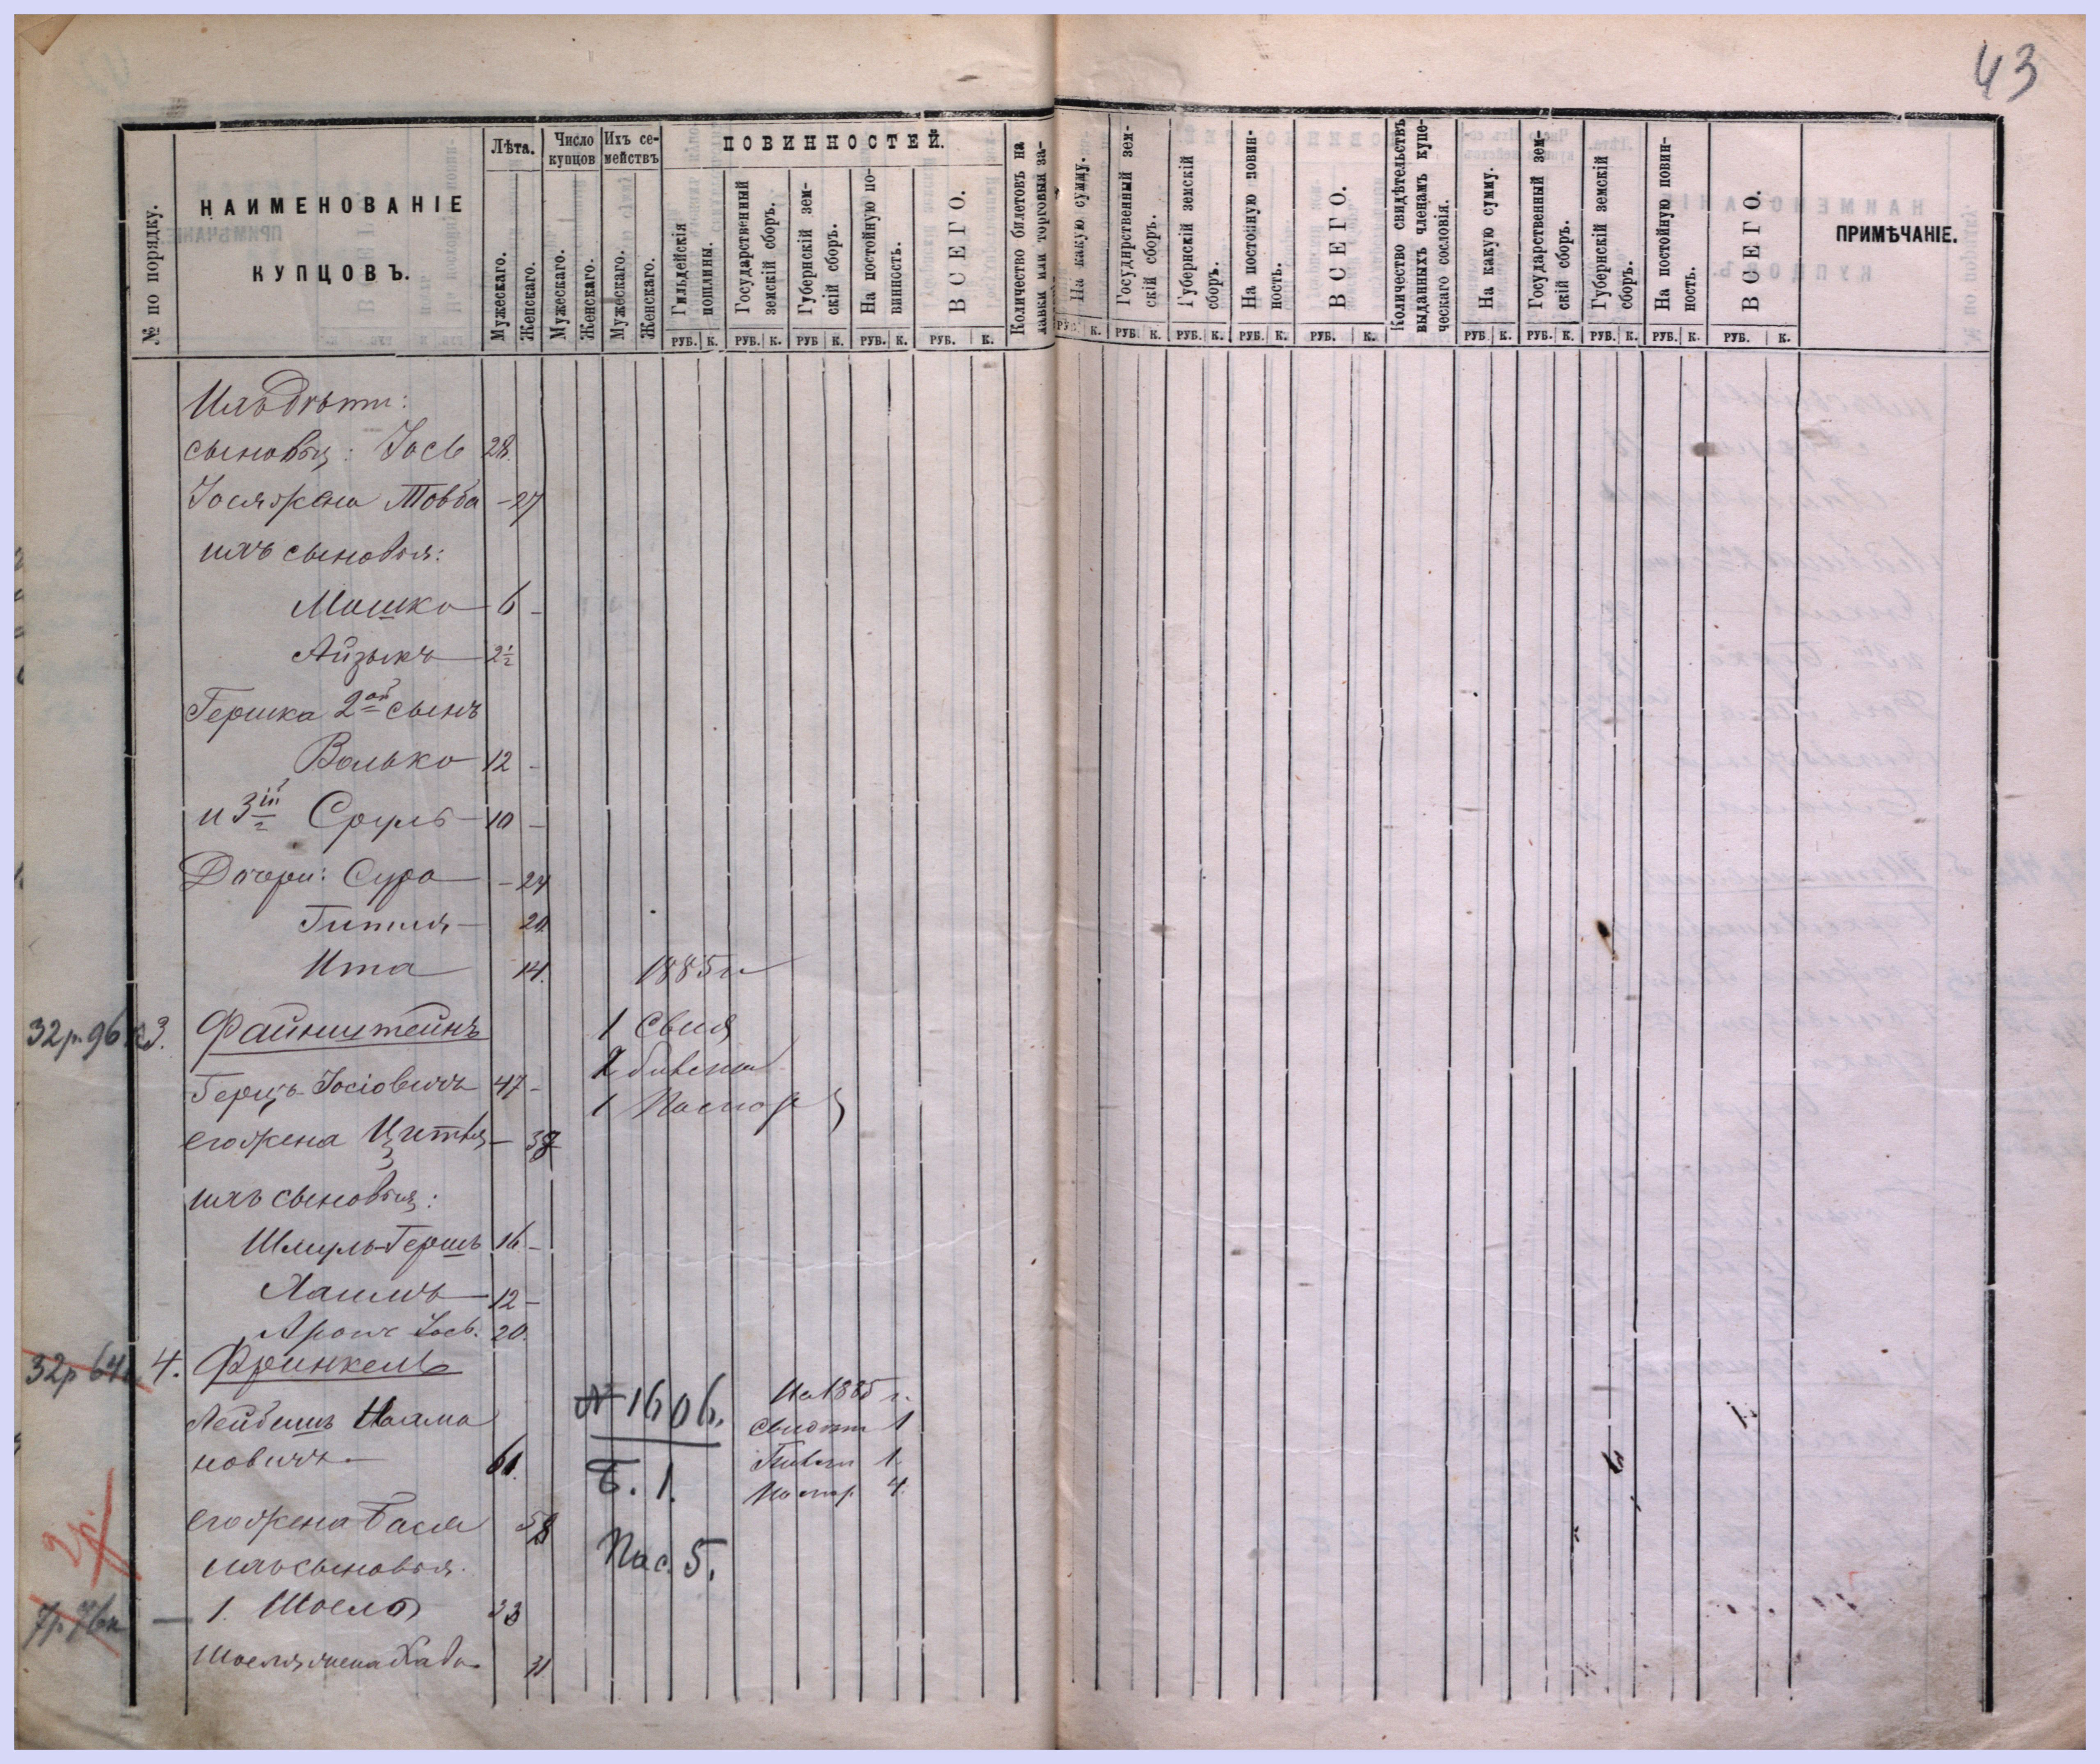 43
№ по порядку.
НАИМЕНОВАНІЕ
КУПЦОВЪ.
Лѣта.
Мужескаго.
Женскаго.
Число купцов
Мужескаго.
Женскаго.
Ихъ се-
мействъ
Мужескаго.
Женскаго.
ПОВИННОСТЕЙ.
Гильдейскія
пошлины.
РУБ. К.
Государственный
земскій сборъ.
РУБ. К.
Губернскій зем-
скій сборъ.
РУБ К.
На постойную по-
винность.
РУБ. К.
ВСЕГО.
РУБ. К.
Количество билетовъ на
лавки или торговыя за-
На какую сумму.
РУБ. К.
Государственный зем-
скій сборъ.
РУБ. К.
Губернскій земскій
сборъ.
РУБ. К.
На постойную повин-
ность.
РУБ. К.
ВСЕГО.
РУБ. К.
Количество свидѣтельствъ
выданныхъ членамъ купе-
ческаго сословія.
На какую сумму.
РУБ К.
Государственный зем-
скій сборъ.
РУБ. К.
Губернскій земскій
сборъ.
РУБ. К.
На постойную повин-
ность.
РУБ. К.
ВСЕГО.
РУБ. К.
ПРИМѢЧАНІЕ.
Ихъ дѣти:
сыновья: Іось 28.
Іося жена Товба - 27
ихъ сыновья:
Мошко 6 -
Айзыкъ 2½
Гершка 2ой сынъ
Волько 12 -
и 3ій Сруль 10 -
Дочери: Сура - 24
Гитля - 20.
Ита 14.
1885 г
32р. 96 к 3. Файнштейнъ
1 Свид
2 билета
Герцъ Іосіовичъ 47 -
1 Паспор
его жена - 38
ихъ сыновья:
Шмуль-Гершъ 16. -
Хаимъ 12 -
Аронъ Іось. 20.
32р 64к 4. Фринкель
Лейбишъ
новичъ - 61.
№ 1606.
Б. 1.
Пас. 5.
На 1885 г.
1
1.
4.
его жена Бася 58
ихъ сыновья.
2р.
7р 76к - 1. Шоель 33
Шоеля жена 31